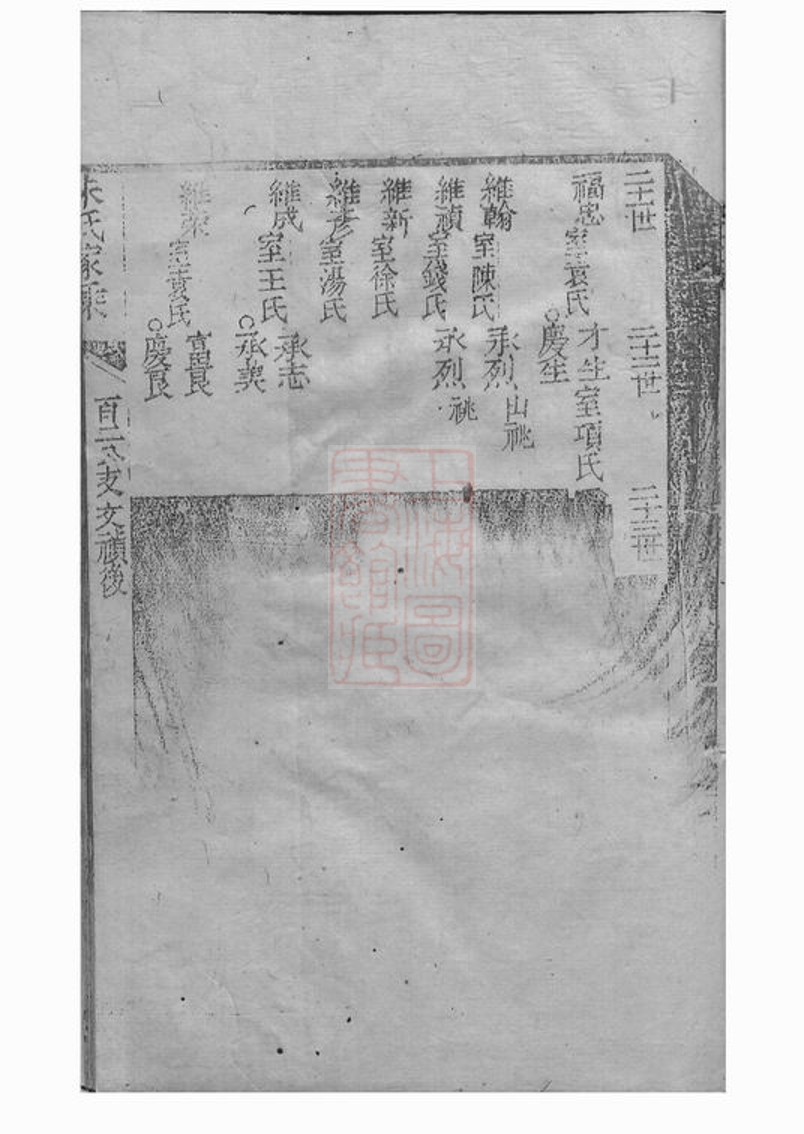 二十一世　二十二世　二十三世
福忠　室袁氏　才生　室項氏
○慶生
維翰　室陳氏　承烈　出祧
維禎　室錢氏　承烈　祧
維新　室徐氏
維彥　室湯氏
維成　室王氏　承志
○承義
維榮　室袁氏　富良
○慶良
朱氏家乘
百二八支文禎後
上海圖書館藏